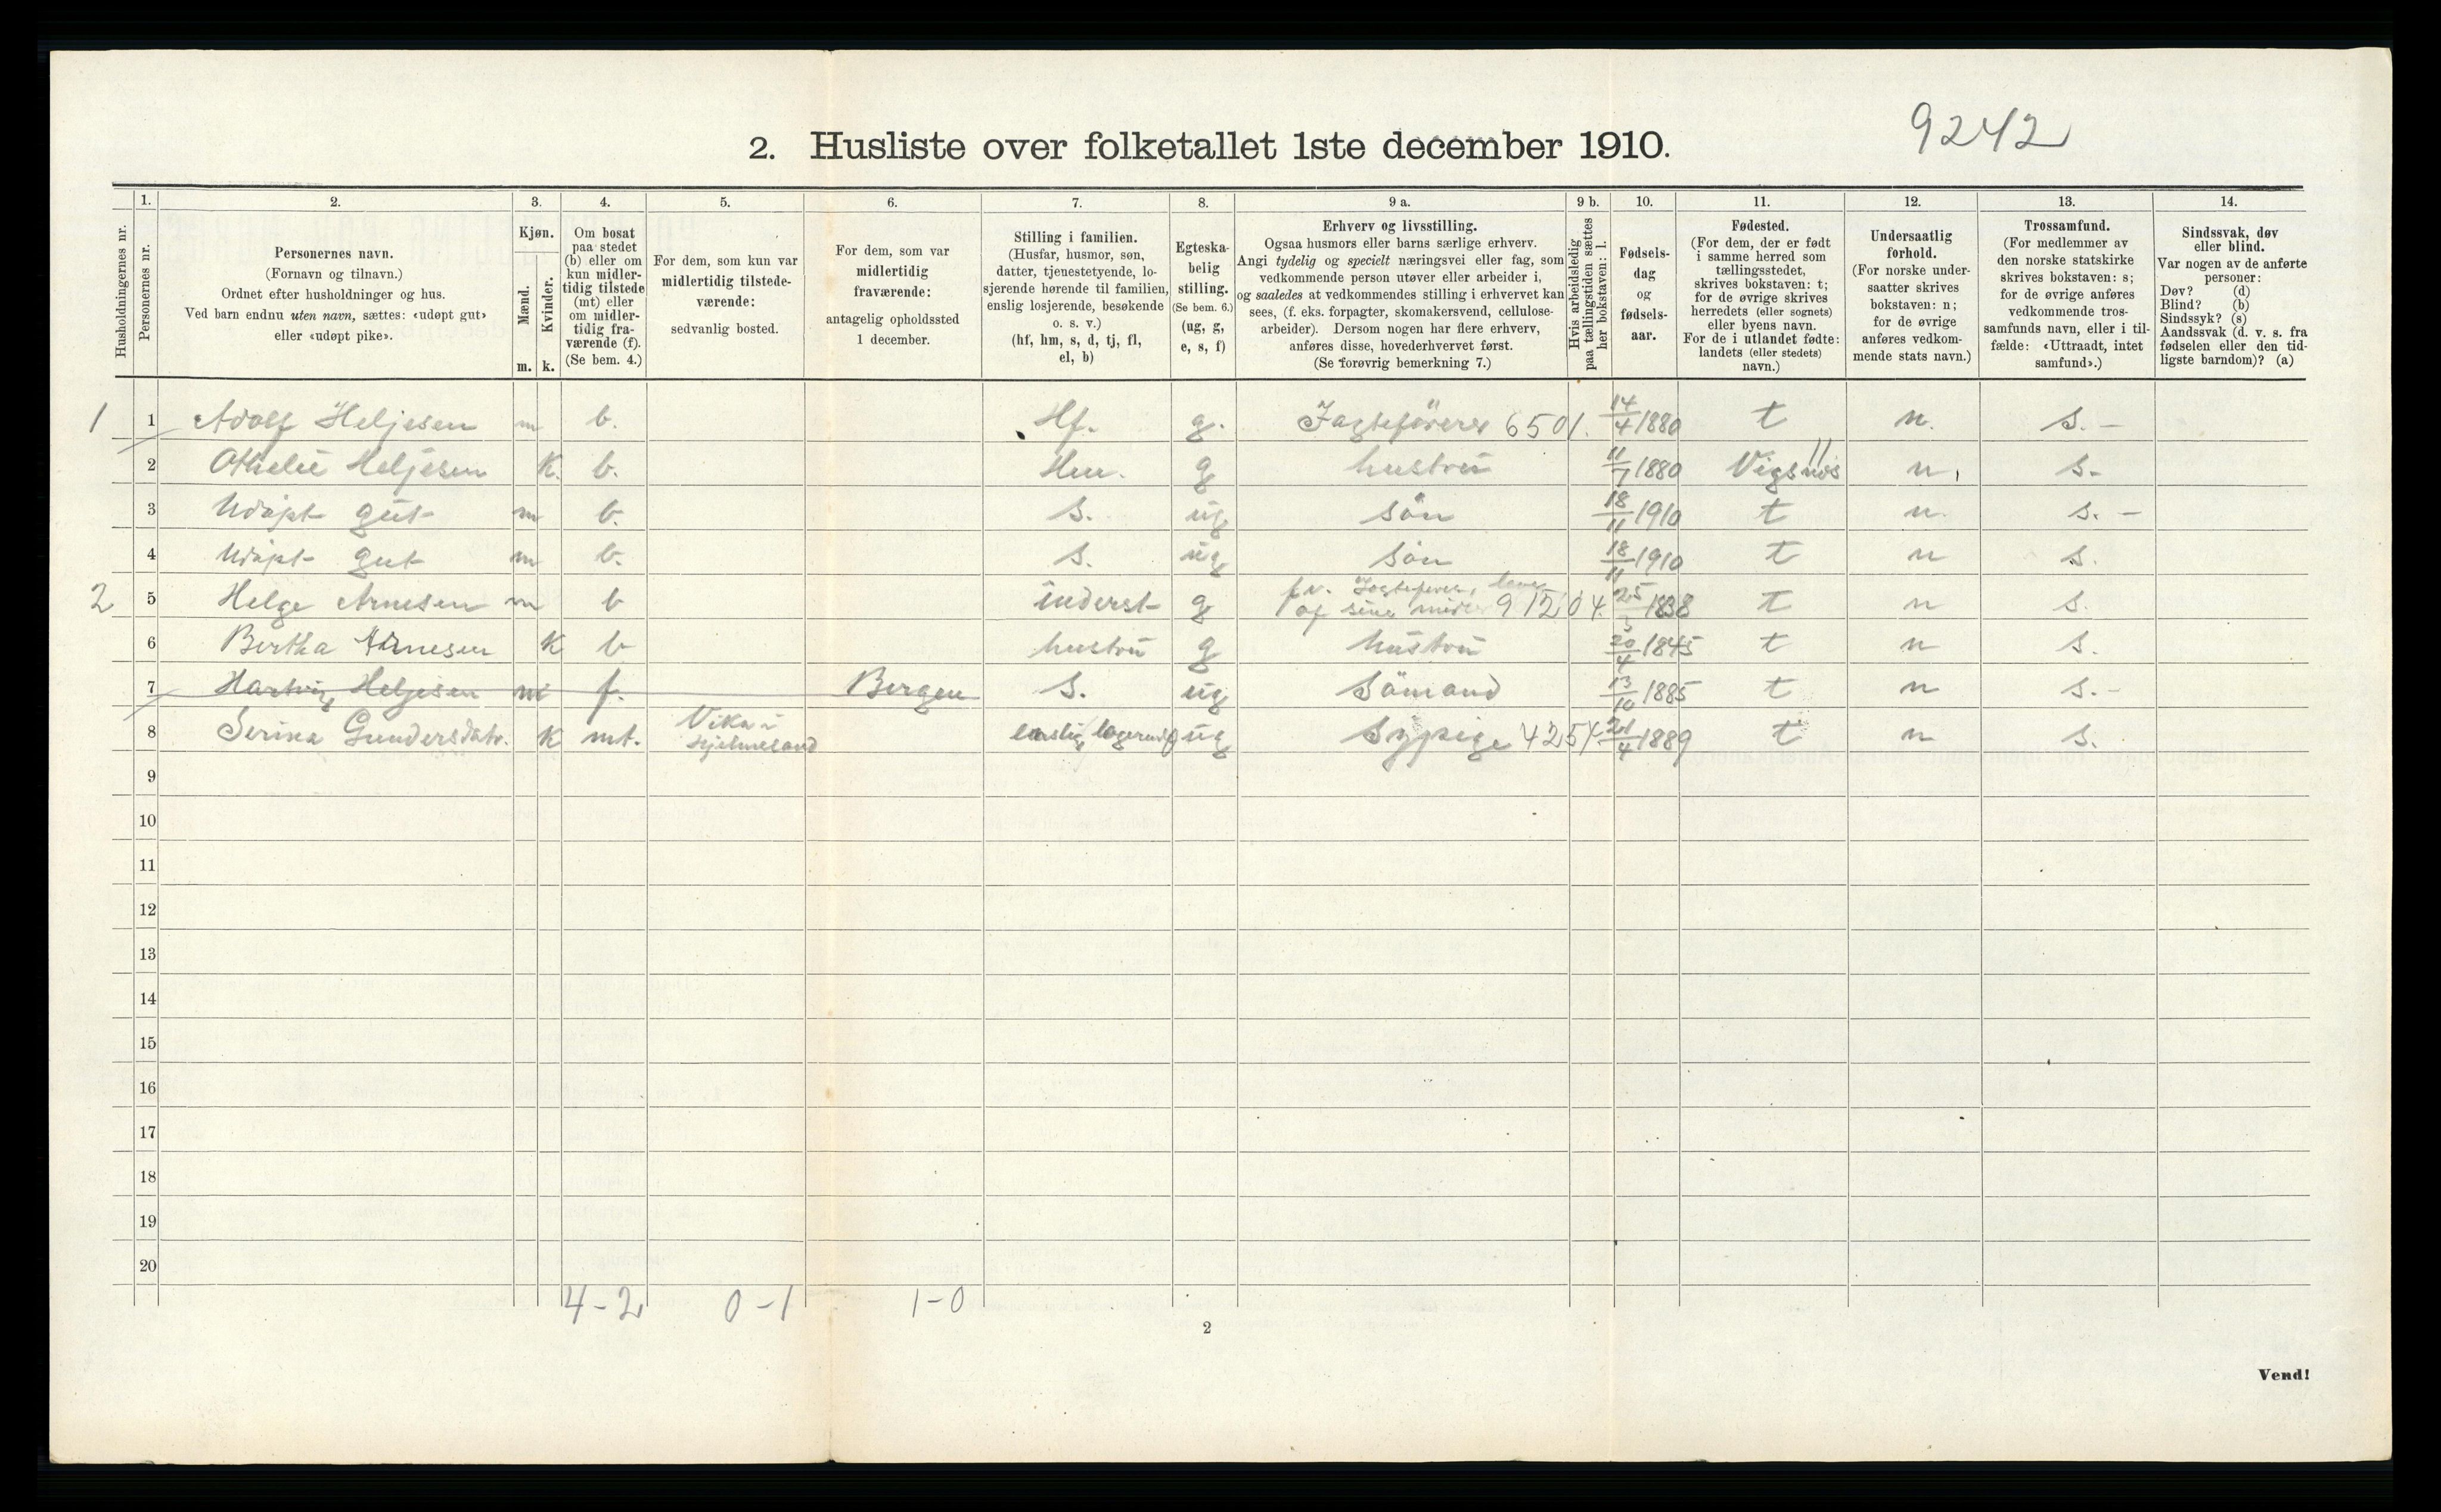 9242
2. Husliste over folketallet 1ste december 1910.
Husholdningernes nr.
1.
Personernes nr.
2.
Personernes navn.
(Fornavn og tilnavn.)
Ordnet efter husholdninger og hus.
Ved barn endnu uten navn, sættes: «udøpt gut»
eller «udøpt pike».
3.
Kjøn.
Mænd.
Kvinder.
m. k.
4.
Om bosat
paa stedet
(b) eller om
kun midler-
tidig tilstede
(mt) eller
om midler-
tidig fra-
værende (f).
(Se bem. 4.)
5.
For dem, som kun var
midlertidig tilstede-
værende:
sedvanlig bosted.
6.
For dem, som var
midlertidig
fraværende:
antagelig opholdssted
1 december.
7.
Stilling i familien.
(Husfar, husmor, søn,
datter, tjenestetyende, lo-
sjerende hørende til familien,
enslig losjerende, besøkende
o. s. v.)
(hf, hm, s, d, tj, fl,
el, b)
8.
Egteska-
belig
stilling.
(Se bem. 6.)
(ug, g,
e, s, f)
9 a.
Erhverv og livsstilling.
Ogsaa husmors eller barns særlige erhverv.
Angi tydelig og specielt næringsvei eller fag, som
vedkommende person utøver eller arbeider i,
og saaledes at vedkommendes stilling i erhvervet kan
sees, (f. eks. forpagter, skomakersvend, cellulose-
arbeider). Dersom nogen har flere erhverv,
anføres disse, hovederhvervet først.
(Se forøvrig bemerkning 7.)
9 b.
Hvis arbeidsledig
paa tællingstiden sættes
her bokstaven: l.
10.
Fødsels-
dag
og
fødsels-
aar.
11.
Fødested.
(For dem, der er født
i samme herred som
tællingsstedet,
skrives bokstaven: t;
for de øvrige skrives
herredets (eller sognets)
eller byens navn.
For de i utlandet fødte:
landets (eller stedets)
navn.)
12.
Undersaatlig
forhold.
(For norske under-
saatter skrives
bokstaven: n;
for de øvrige
anføres vedkom-
mende stats navn.)
13.
Trossamfund.
(For medlemmer av
den norske statskirke
skrives bokstaven: s;
for de øvrige anføres
vedkommende tros-
samfunds navn, eller i til-
fælde: «Uttraadt, intet
samfund».)
14.
Sindssvak, døv
eller blind.
Var nogen av de anførte
personer:
Døv? (d)
Blind? (b)
Sindssyk? (s)
Aandssvak (d. v. s. fra
fødselen eller den tid-
ligste barndom)? (a)
1 1 Adolf Heljesen m b. Hf. g. Jagtefører 6501. 14/4 1880 t n. s. -
2 Othelie Heljesen K. b. Hu. g hustru 11/7 1880 Vigsnes 11 n. s.
3 Udøpt gut m b. S. ug søn 18/11 1910 t n. s. -
4 Udøpt gut m b. S. ug søn 18/11 1910 t n s.
2 5 Helge Arnesen m b inderst g fv. Jagtefører, lever
af sine midler 915 04. 25/3 1838 t n s.
6 Bertha Arnesen K b hustru g hustru 20/4 1845 t n s.
7 Hartvig Heljesen m f. Bergen S. ug Sømand 13/10 1885 t n s. -
8 Serina Gundersdatr. K mt. Vika i
Hjelmeland enslig logerende ug Sypige 425 21/4 1889 t n s.
9
10
11
12
13
14
15
16
17
18
19
20
4-2 0-1 1-0
2
Vend!